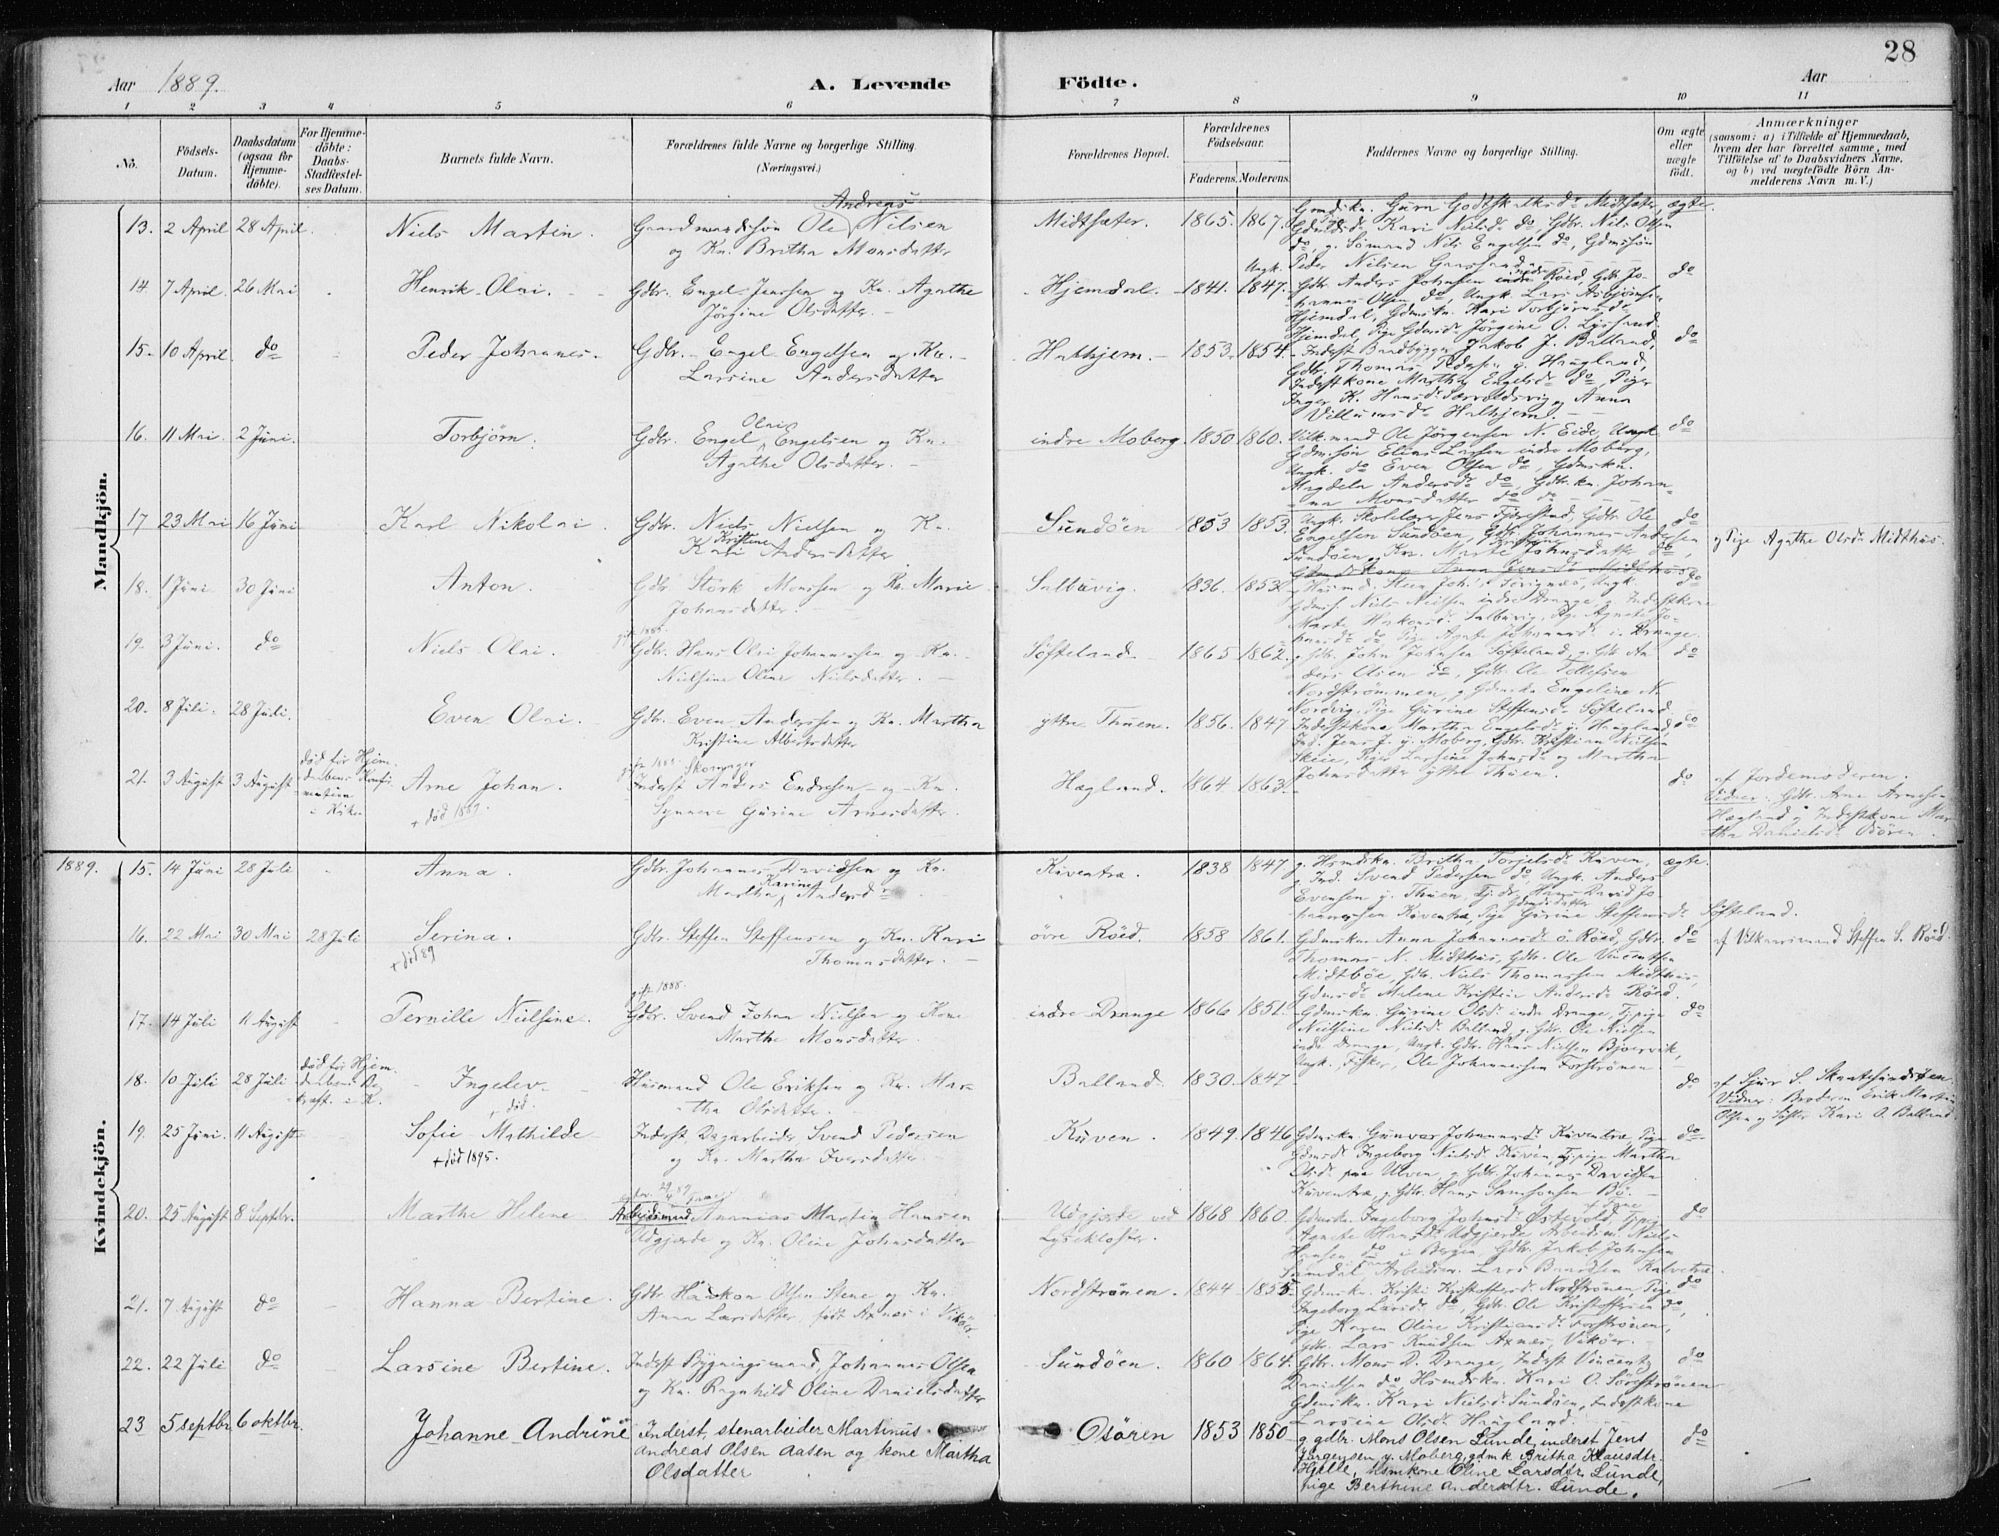 28
Aar 1889.
A. Levende
Födte.
Aar
1 2 3 4 5 6 7 8 9 10 11
No.
Födsels-
Datum.
Daabsdatum
(ogsaa for
Hjemme-
döbte).
For Hjemme-
döbte:
Daabs-
Stadfæstel-
ses Datum.
Barnets fulde Navn.
Forældrenes fulde Navne og borgerlige Stilling
(Næringsvei.)
Forældrenes Bopæl.
Forældrenes
Födselsaar.
Faderens.
Moderens.
Faddernes Navne og borgerlige Stilling.
Om ægte
eller
uægte
födt.
Anmærkninger
(saasom: a) i Tilfælde af Hjemmedaab,
hvem der har forrettet samme, med
Tilföielse af to Daabsvidners Navne,
og b) ved uægtefödte Börn An-
melderens Navn m. V.)
Mandkjön.
13. 2 April 28 April Niels Martin.
Gaardmandssön Ole Andreas Nilsen
og Kn. Britha Monsdatter
Midtsæter. 1865. 1867.
Gmdskn. Guru Godtskalksdr Midtsæter,
Kari Nielsdr do, Gdbr. Nils Olsen
do, g. Sömand Nils Engelsen do, Gdmssön
Peder Nielsen
ægte.
14. 7 April 26 Mai Henrik Olai.
Gdbr. Engel Jenssen og Kn. Agathe
Jörgine Olsdatter.
Hjemdal. 1841. 1847.
Gdbr. Anders Johnsen indre Röed, Gdr. Jo-
hannes Olsen do, Ungk. Lars Asbjörns.
Hjemdal, Gdmskn. Kari Torbjörnsdr
Hjemdal, Pige Jörgine O. Lysand.
do
15. 10 April do Peder Johannes.
Gdbr. Engel Engelsen og Kn.
Larsine Andersdatter
Hathjem. 1853. 1854.
Inderst Baadbygger Jakob J. Balland,
Gdbr. Thomas Pedersen y. Haugland,
Inderstkone Martha Engelsdr do, Piger
Inger K. Hansdr Særvoldsvig og Anna
Villumsdr Halhjem.
do
16. 11 Mai. 2 Juni. Torbjörn.
Gdbr. Engel Olai Engelsen og Kn.
Agathe Olsdatter.
indre Moberg. 1850. 1860.
Ole Jörgensen N. Eide, Ungk.
Gdmssön Elias Larsen indre Moberg,
Ungk. do Even Olsen do, Gdmskn.
Magdela Andersdr do, Gdbr.kn. Johan-
na Monsdatter do
do
17 23 Mai 16 Juni Karl Nikolai.
Gdbr. Niels Nielsen og Kn.
Kari Kristine Andersdatter
Sundöen 1853 1853.
Ungk. Skolelærer Jens Fjöresund, Gdbr. Ole
Engelsen Sundöen, Gdbr. Johannes Andersen
Sundöen, Kn. Marte Johnsdatter do,
do
g Pige Agathe Olsdr Midthus.
18. 1 Juni 30 Juni Anton.
Gdbr. Störk Monssen og Kn. Marie
Johansdatter.
Salbuvig. 1836. 1853.
Niels Nielsen indre Drange, g. Inderstkone
Marte Haakonsdr Salbuvig, Pg. Agnete Jo-
hansdr do
do
19. 3 Juni. do Niels Olai.
Gdbr. Hans Olai Johannessen og Kn.
Nielsine Oline Nielsdatter.
Söfteland 1865 1862.
g. Gdbr. John Johnsen Söfteland, g. Gdr. An-
ders Olsen do, Gdbr. Ole Tollefsen
Nordströmmen, g. Gdmskn. Engeline N.
Nordvig, Pige Gurine Steffensdr Söfteland.
do
20. 8 Juli. 28 Juli. Even Olai.
Gdbr. Even Anderssen og Kn. Martha
Kristine Albertsdatter
yttre Thuen. 1856. 1847.
Inderstkone Martha Engelsdr y. Haugland,
Ind. Jens J. y. Moberg, Gdbr. Kristian Nielsen
Skeie, Piger Larsine Johnsdr og Martha
Johnsdatter yttre Thuen.
do
21. 3 August 3 August
död för Hjem-
daabens Konfir-
mation
i Kirken
Arne Johan.
+ död 1889.
Skomager
Inderst Anders Endresen og Kn.
Synneve Gurine Arnesdatter.
Hægland. 1864. 1863.
do
af Jordemoderen.
Vidner: Gdbr. Arne Arnesen
Hægland g Inderstkone Mar-
tha Danielsdr Osören.
Kvindekjön.
1889. 15. 14 Juni 28 Juli Anna.
Gdbr. Johannes Davidsen og Kn.
Martha Karine Andersdr
Kuventræ. 1838 1847
g. Hsmdskn. Britha Torjelsdr Kuven,
g. Ind. Svend Pedersen do, Ungk. Anders
Evensen y. Thuen, Tj.dr. Hans David Jo-
hannessen Kuventræ, Pige Gurine Steffensdr Söfteland.
ægte.
16. 22 Mai 30 Mai 28 Juli Serina.
+ död 89
Gdbr. Steffen Steffensen og Kn. Kari
Thomasdatter.
övre Röed. 1858 1861.
Gdmskn. Anna Johannesdr ö. Röed, Gdbr.
Thomas N. Midthus, Gdbr. Ole Vincentsen
Midtböe, Gdbr. Niels Thomassen Midthus,
Gdmsdr Malene Kristine Andersdr Röed.
do
af Vilkaarsmand Steffen S. Röed.
17. 14 Juli 11 August Pernille Nielsine.
gift 1888.
Gdbr. Svend Johan Nielsen og Kone
Marthe Monsdatter.
indre Drange 1866 1851.
Gdmskn. Gurine Olsdr indre Drange, Tj.pige
Nielsine Nielsdr Balland, g. Gdbr. Ole Nielsen
indre Drange, Ungk. Gdbr. Hans Nielsen Bjoervik,
Ungk. Fisker, Ole Johannessen Forströnen.
do
18. 10 Juli 28 Juli
död för Hjem-
daabens Be-
kræft. i K.
Ingelev
+ död.
Husmand Ole Eriksen og Kn. Mar-
tha Olsdatter.
Balland. 1830. 1847.
do
af Sjur S. Skaatsundsöen.
Vidner: Broderen Erik Martin
Olsen og Söster Kari O. Balland.
19. 25 Juni. 11 August Sofie Mathilde
+ död 1895.
Inderst Dagarbeider Svend Pedersen
og Kn. Martha Iversdatter.
Kuven. 1849. 1846
Gdmskn. Gunvor Johannesdr Kuventræ, Pige
Gdmsdr Ingeborg Nielsdr Kuven, Tj.pige Martha
Olsdr paa Ulven, g. Gdbr. Johannes Davidsen
Kuventræ, g. Gdbr. Hans Samsonsen Bö.
do
20. 25 August 8 Septbr. Marthe Helene
Arbeidsmand Ananias Martin Hansen
Udgjærde og Kn. Oline Johnsdatter
Udgjærde ved
Lysekloster. 1868 1860.
Gdmskn. Ingeborg Johnsdr Östevold, Tj.pige
Agnete Hansdr Udgjærde, Arbeidsm. Niels
Hansen do i Bergen, Gdbr. Jakob Johnsen
Samdal, Arbeidsm. Lars Baardsen Kalvetræ.
do
21. 7 August do Hanna Bertine.
Gdbr. Haakon Olsen Stene og Kn.
Anna Larsdatter, födt Axnes i Vikör.
Nordströnen. 1844 1855.
Gdmskn. Kristi Kristoffersdr Nordströnen, Pige
Ingeborg Larsdr do, Gdbr. Ole Kristoffersen do,
Pige Karen Oline Kristiansdr Forströnen,
Gdbr. Lars Knudsen Axnes, Vikör.
do
22. 22 Juli do Larsine Bertine.
Inderst Bygningsmand, Johannes Olsen
og Kn. Ragnhild Oline Danielsdatter
Sundöen. 1860 1864.
Gdbr. Mons D. Drange, Inderst Vincents
Danielsen do, Hsmdskn. Kari O. Sörströnen
Gdmskn. Kari Nielsdr Sundöen, Inderstkone
Larsine Olsdr Haugland.
do
23 5 septbr. 6 oktbr. Johanne Andrine
Inderst, stenarbeider Martinus
Andreas Olsen Aasen og kone Martha
Olsdatter
Osören 1853 1850
g gdbr. Mons Olsen Lunde, inderst Jens
Jørgensen y. Moberg, gdmk Britha Klausdtr.
Hjelle, Hsmkone Oline Larsdtr. Lunde,
pige Berthine Andersdtr. Lunde.
do